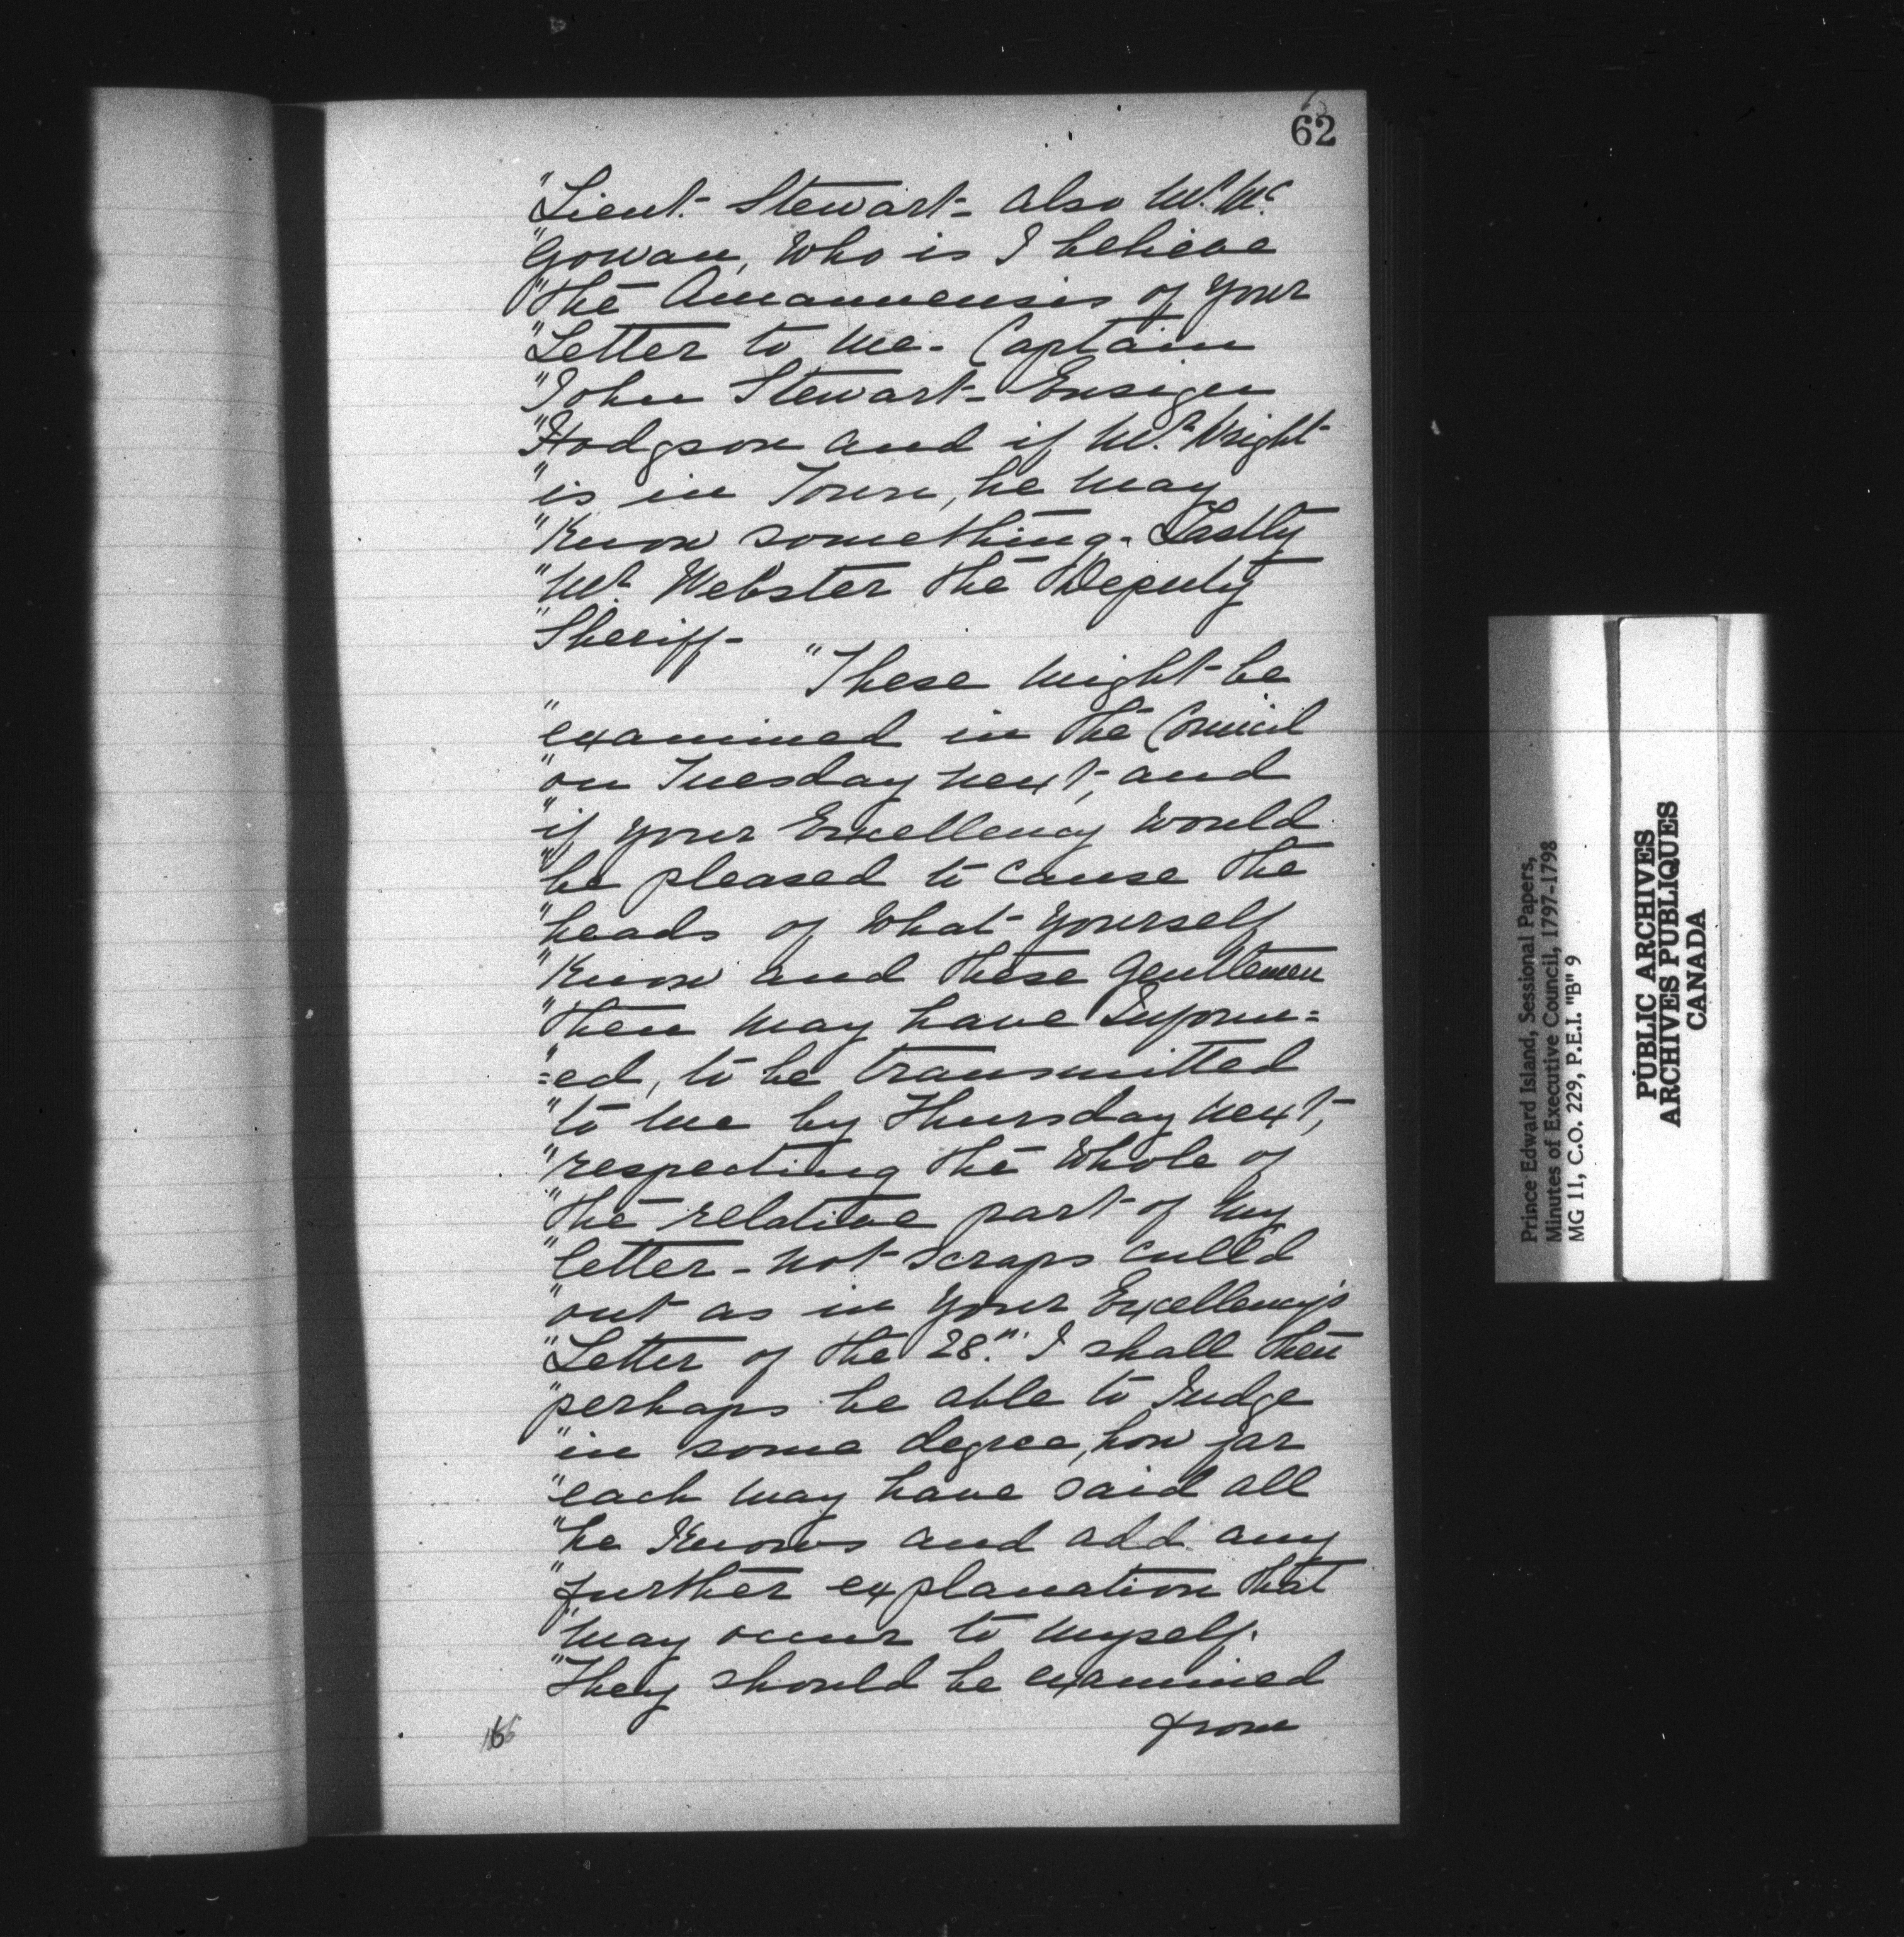 62
"Lieut. Stewart- also Mr. Mc.
"Gowan, Who is I believe
"the Amanuensis of your
"Letter to me- Captain
"John Stewart- Ensign
"Hodgson and if Mr. Wright
"is in Town, he may
"Know something- Lastly
"Mr. Webster the Deputy
"Sheriff-
"These might be
"examined in the Council
"on Tuesday next, and
"if your Excellency would
"be pleased to cause the
"heads of what yourself
"Know and these Gentlemen
"then may have Inform=
"=ed, to be transmitted
"to me by Thursday next,
"respecting the whole of
"the relative part of my
"letter- not scraps cull'd
"out as in your Excellency's
"Letter of the 28th. I shall then
"perhaps be able to Judge
"in some degree, how far
"each may have said all
"he Knows and add any
"further explanation that
"may occur to myself.
"They should be examined
from
Prince Edward Island, Sessional Papers,
Minutes of Executive Council, 1797-1798
MG 11, C.O. 229, P.E.I. "B" 9
PUBLIC ARCHIVES
ARCHIVES PUBLIQUES
CANADA